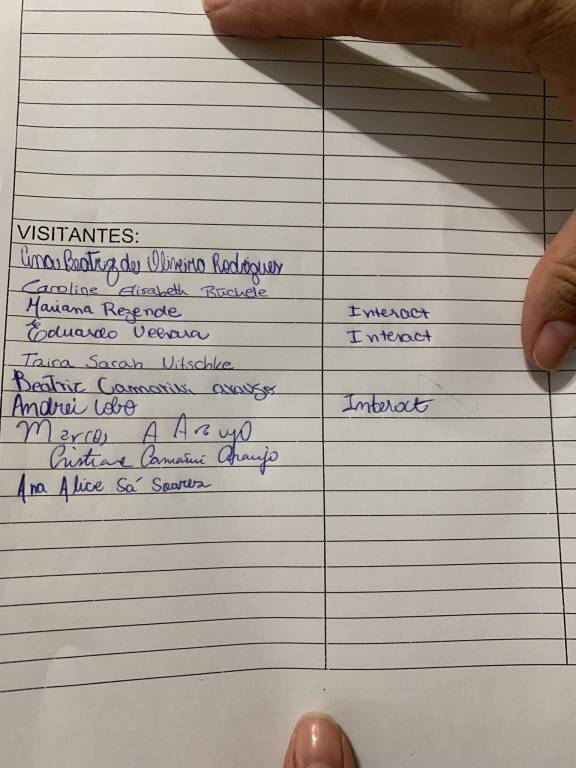 VISITANTES:
Ana Beatriz de Oliveira Rodrigues
Caroline Elisabeth Büchele
Mariana Rezende Interact
Eduardo Interact
Taira Sarah Nitschke
Beatriz Camarini Araujo
Andrei Lobo Interact
Marcos A Araujo
Cristiane Camarini Araujo
Ana Alice Sá Soares